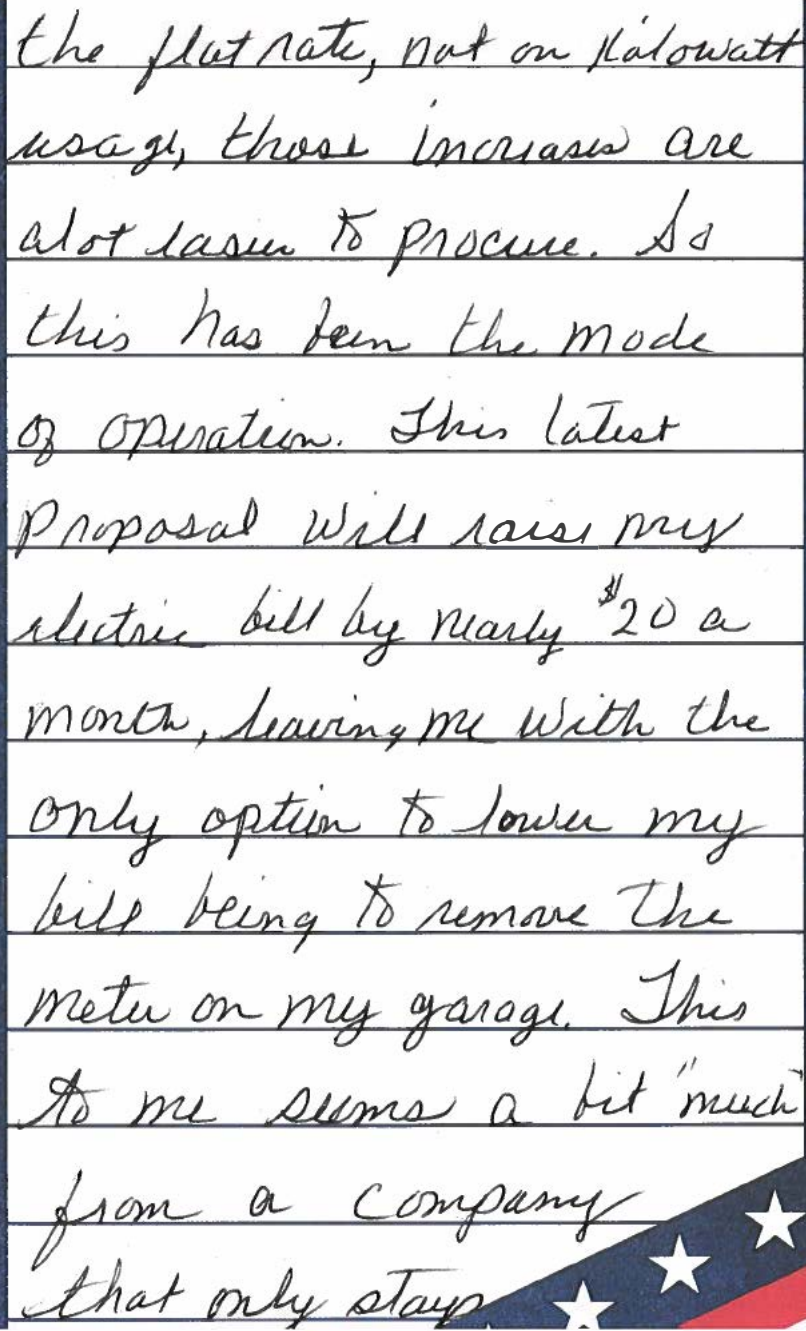 the flat rate, not on Kilowatt
usage, those increases are
alot easier to procure. So
this has been the mode
of operation. This latest
proposal will raise my
electric bill by nearly $20 a
month, leaving me with the
only option to lower my
bill being to remove the
meter on my garage. This
to me seems a bit "much"
from a company
that only stays